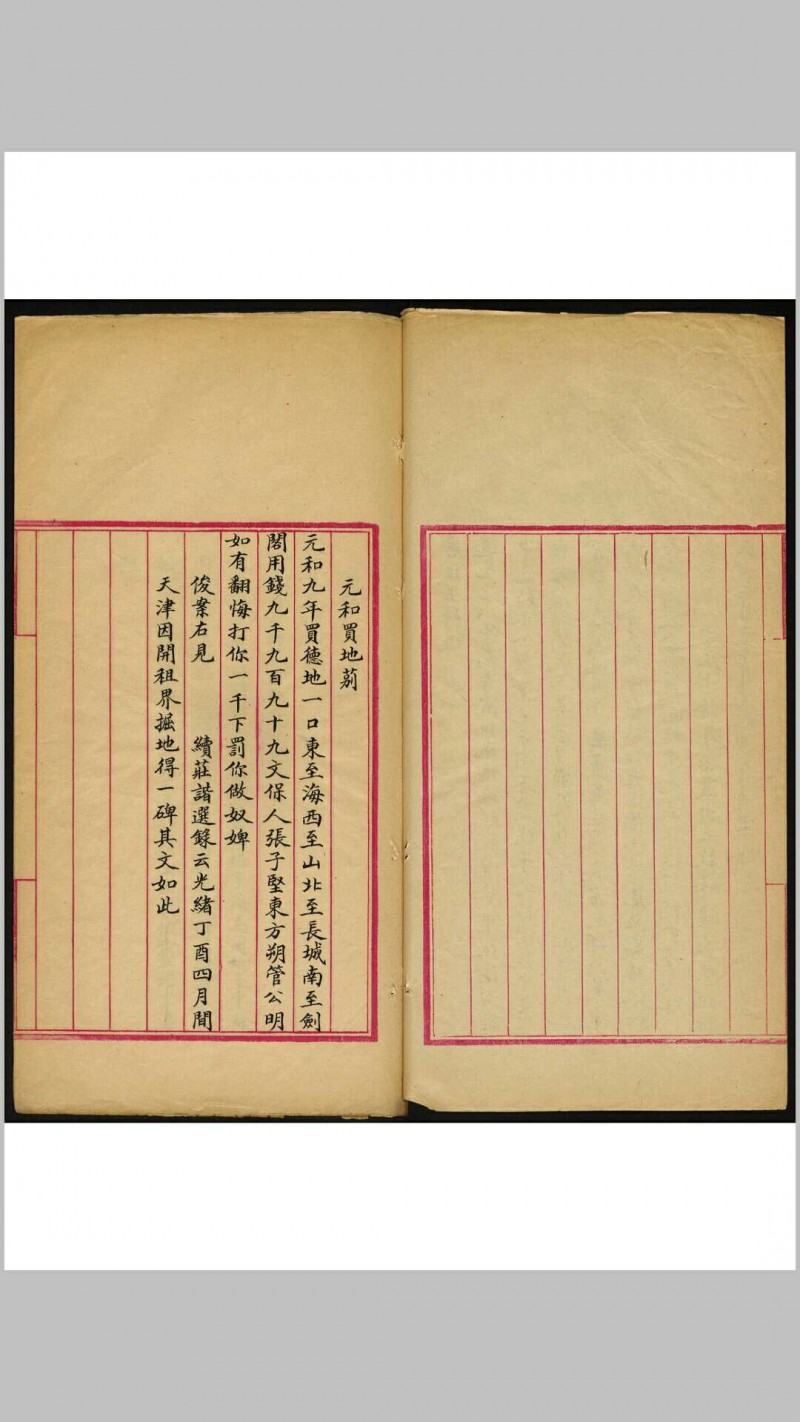 元和買地莂
元和九年買德地一口東至海西至山北至長城南至劍
閣用錢九千九百九十九文保人張子堅東方朔管公明
如有翻悔打你一千下罰你做奴婢
俊案右見　　續莊諧選錄云光緒丁酉四月間
天津因開租界掘地得一碑其文如此